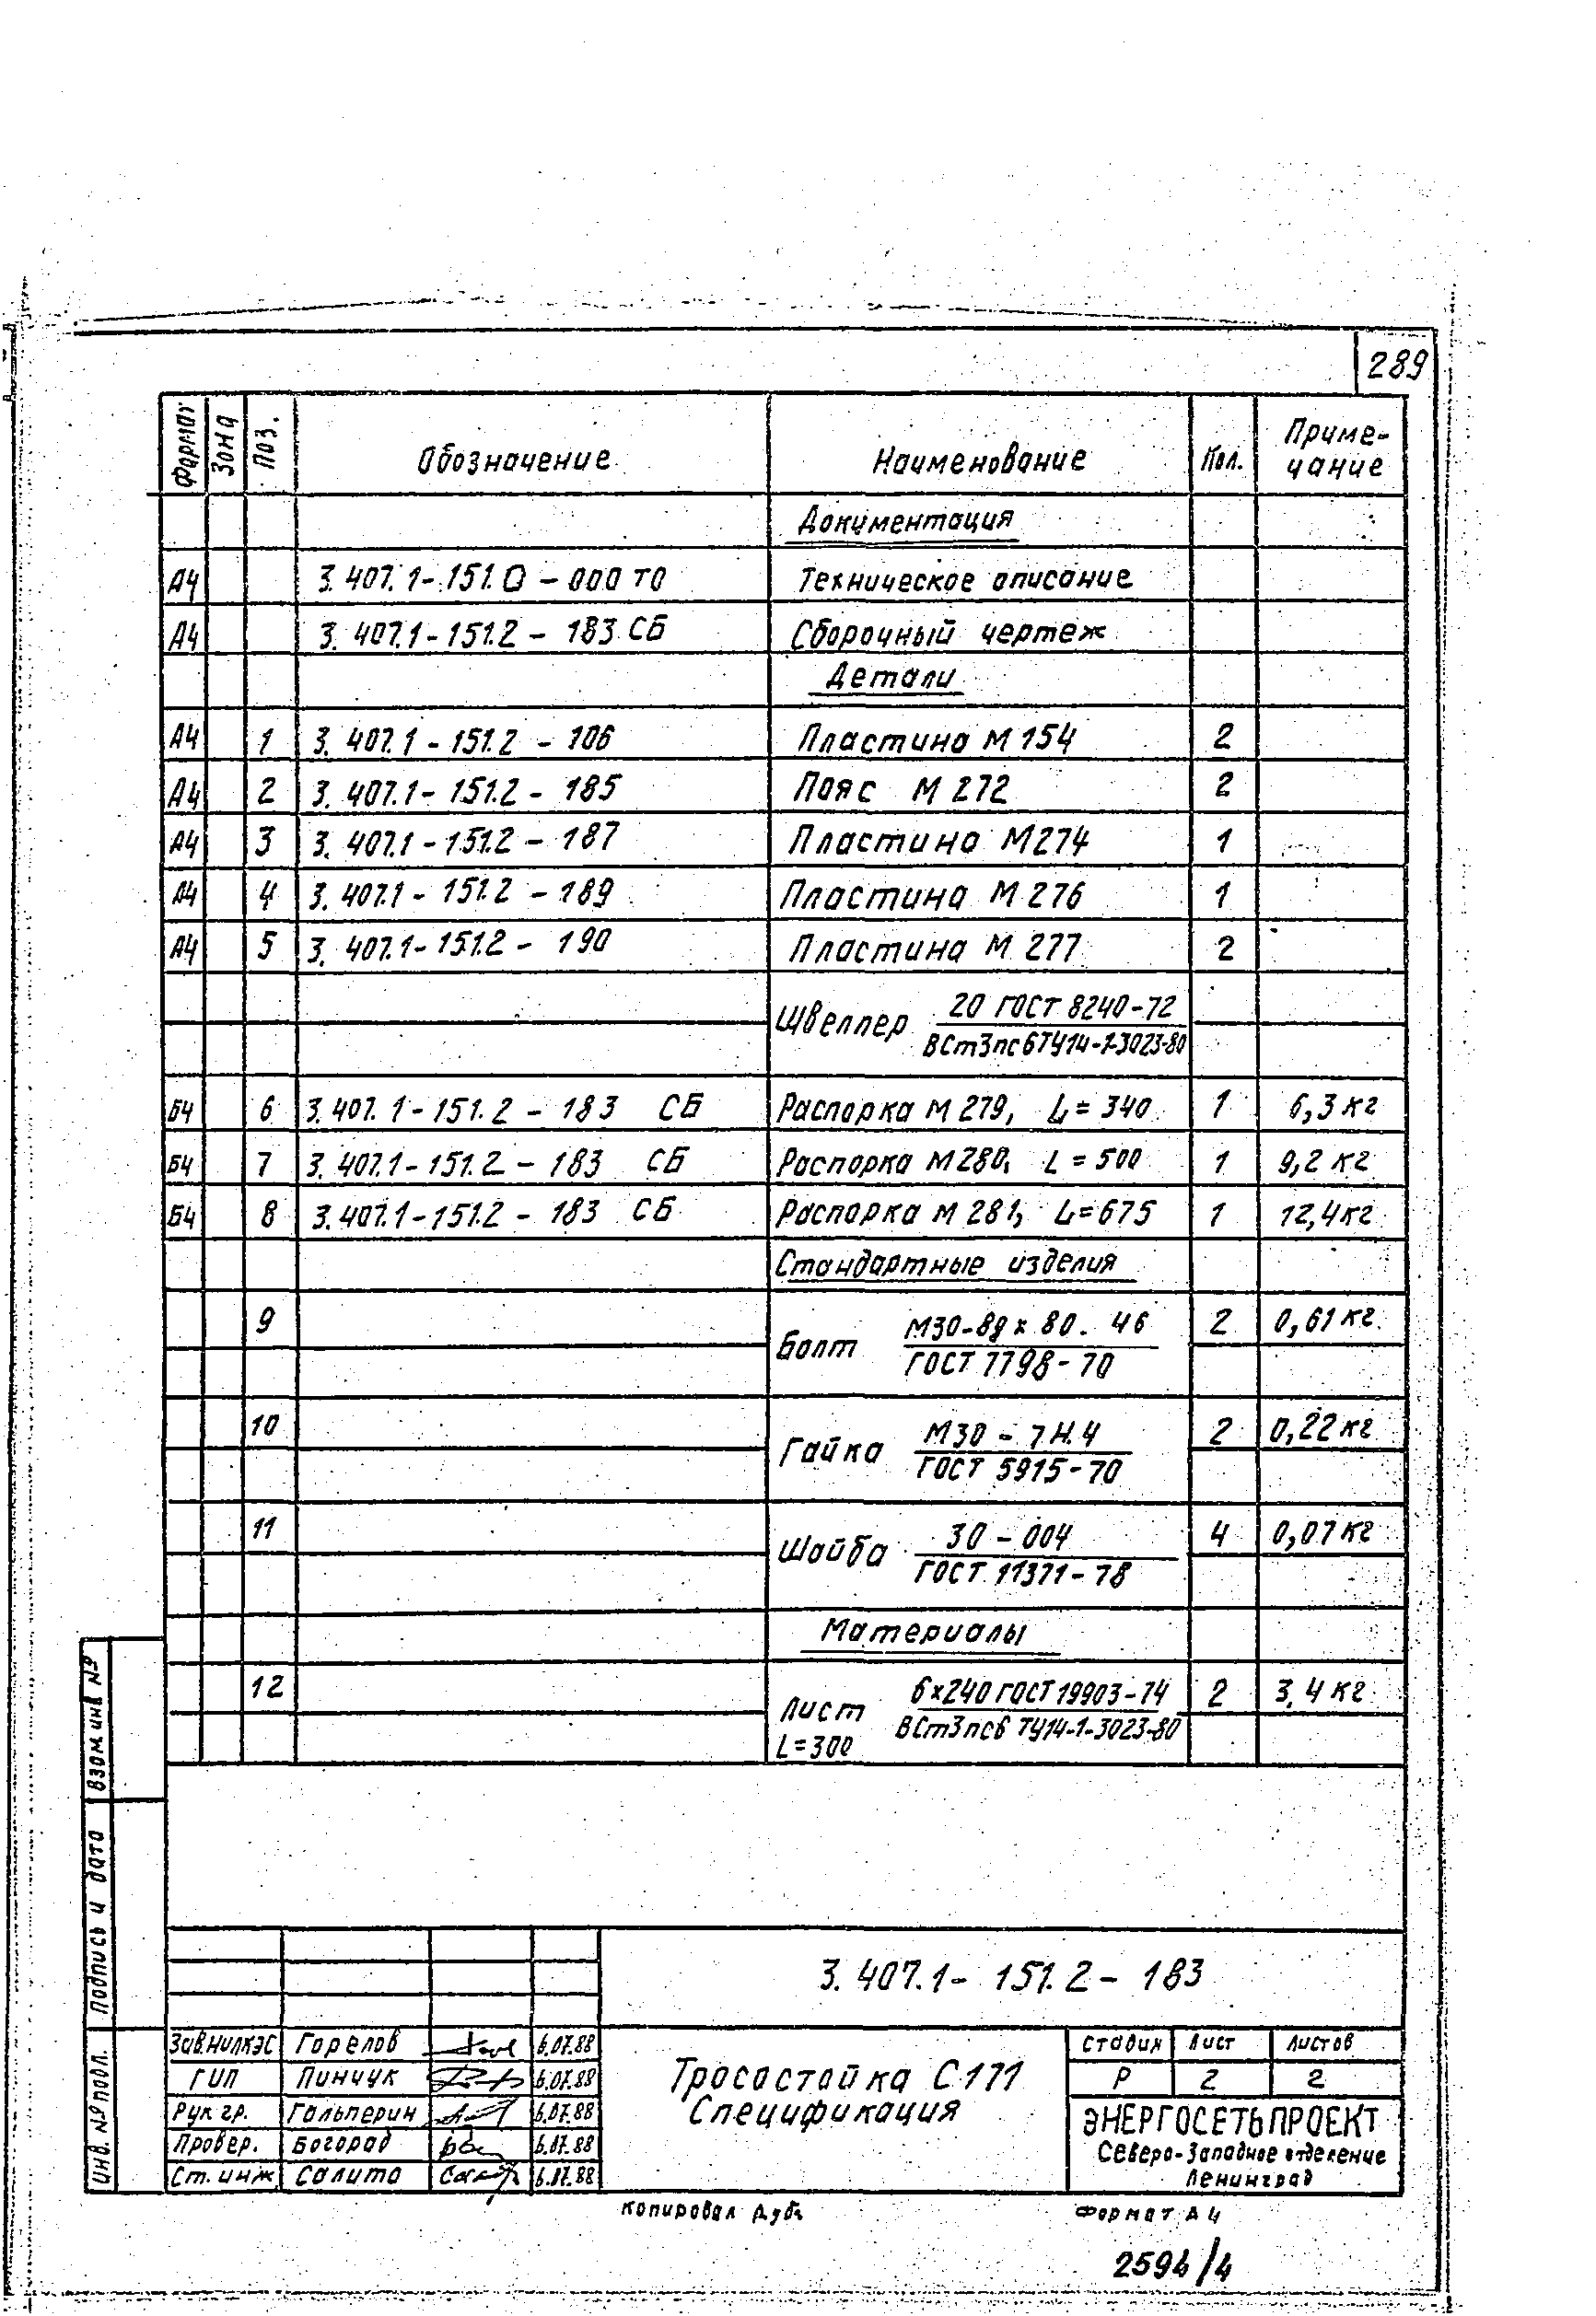 289
Формат Зона Поз. Обозначение Наименование Кол. Приме-
чание
Документация
А4 3.407.1-151.0-000 ТО Техническое описание
А4 3.407.1-151.2-183 СБ Сборочный чертеж
Детали
А4 1 3.407.1-151.2-106 Пластина М 154 2
А4 2 3.407.1-151.2-185 Пояс М 272 2
А4 3 3.407.1-151.2-187 Пластина М274 1
А4 4 3.407.1-151.2-189 Пластина М 276 1
А4 5 3.407.1-151.2-190 Пластина М 277 2
20 ГОСТ 8240-72
Швеллер
ВСт3пс6ТУ14-1-3023-80
Б4 6 3.407.1-151.2-183 СБ Распорка М 279, L=340 1 6,3 кг
Б4 7 3.407.1-151.2-183 СБ Распорка М280, L=500 1 9,2 кг
Б4 8 3.407.1-151.2-183 СБ Распорка М 281, L=675 1 12,4 кг
Стандартные изделия
9 М30-8g х 80. 46 2 0,61 кг
Болт
ГОСТ 7798-70
10 М30-7Н.4 2 0,22 кг
Гайка
ГОСТ 5915-70
11 30-004 4 0,07 кг
Шайба
ГОСТ 11371-78
Материалы
12 6х240 ГОСТ 19903-74 2 3,4 кг
Лист
ВСт3пс6 ТУ14-1-3023-80
L=300
Взам.инв №
Подпись и дата
Инв. № подл.
3.407.1-151.2-183
Зав.НИЛКЭС Горелов 6.07.88
ГИП Пинчук 6.07.88
Рук гр. Гальперин 6.07.88
Провер. Богорад 6.07.88
Ст. инж Салита 6.07.88
Тросостойка С171
Спецификация
Стадия Лист Листов
Р 2 2
ЭНЕРГОСЕТЬПРОЕКТ
Северо-Западное отделение
Ленинград
Копировал
Формат А4
2594/4